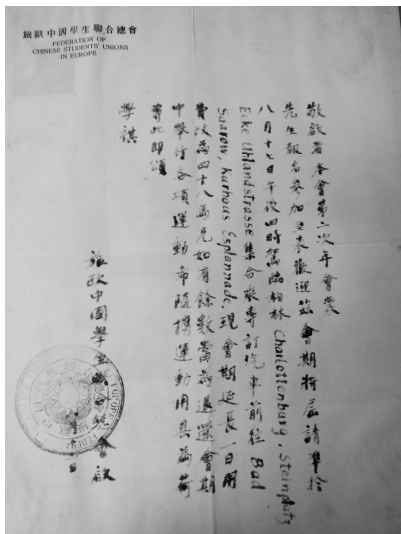 旅歐中國學生聯合總會
FEDERATION OF
CHINESE STUDENTS' UNIONS
IN EUROPE
敬啟者本會第二次年會蒙
先生報名參加至表歡迎茲會期將屆請準於
八月十七日午後四時駕臨柏林 Charlottenburg, Steinplatz
Ecke Uhlandstrasse 集合乘專訂汽車前往 Bad
Saarow, Kurhaus Esplannade. 現會期延長一日用
費仅為四十八馬克如有餘數當為退還會期
中舉行各項運動希隨攜運動用具為荷
專此即頌
學祺
旅歐中國學生聯合總會啟